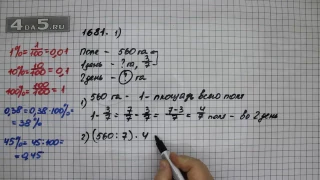 4да5.ru
1% = 1/100 = 0,01
10% = 10/100 = 0,1
100% = 100/100 = 1
0,38 = 0,38·100% = 38%
45% = 45:100 = 0,45
1681. 1)
Поле - 560 га
1 день - ? га, 3/7
2 день - ? га
1) 560 га - 1 - площадь всего поля
1 - 3/7 = 7/7 - 3/7 = 7-3/7 = 4/7 поля - во 2 день
2) (560 : 7) · 4